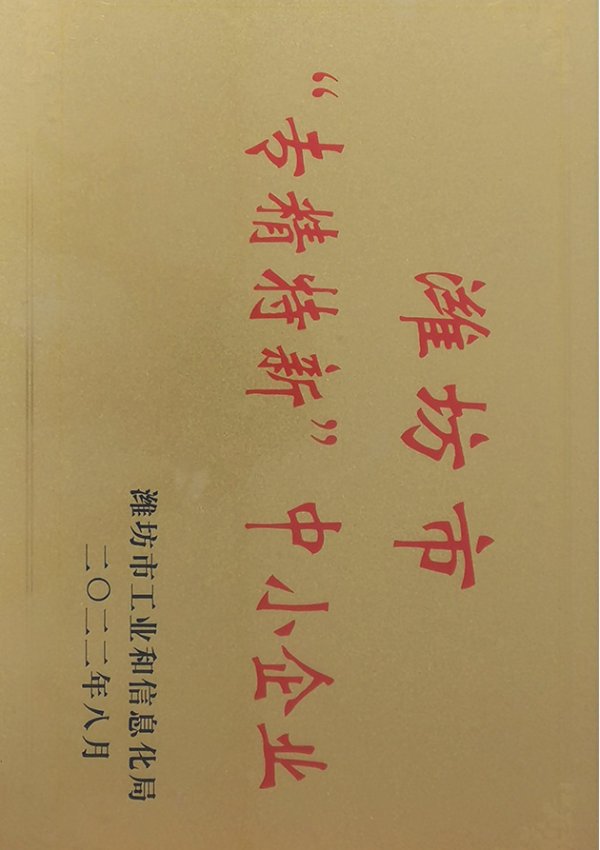 潍坊市
“专精特新”中小企业
潍坊市工业和信息化局
二〇二二年八月